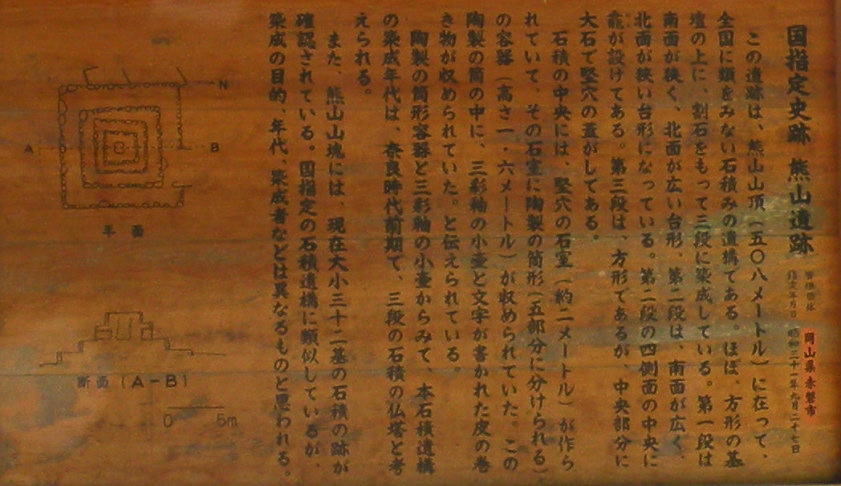 国指定史跡 熊山遺跡
管理団体 岡山県赤磐市
指定年月日 昭和三十一年九月二十七日
この遺跡は、熊山山頂（五〇八メートル）に在って、
全国に類をみない石積みの遺構である。ほぼ、方形の基
壇の上に、割石をもって三段に築成している。第一段は
南面が狭く、北面が広い台形。第二段は、南面が広く、
北面が狭い台形になっている。第二段の四側面の中央に
龕が設けてある。第三段は、方形であるが、中央部分に
大石で竪穴の蓋がしてある。
石積の中央には、竪穴の石室（約二メートル）が作ら
れていて、その石室に陶製の筒形（五部分に分けられる）
の容器（高さ一・六メートル）が収められていた。この
陶製の筒の中に、三彩釉の小壷と文字が書かれた皮の巻
き物が収められていた。と伝えられている。
陶製の筒形容器と三彩釉の小壷からみて、本石積遺構
の築成年代は、奈良時代前期で、三段の石積の仏塔と考
えられる。
また、熊山山塊には、現在大小三十二基の石積の跡が
確認されている。国指定の石積遺構に類似しているが、
築成の目的、年代、築成者などは異なるものと思われる。
N
A B
平面
断面(A-B)
0 5m